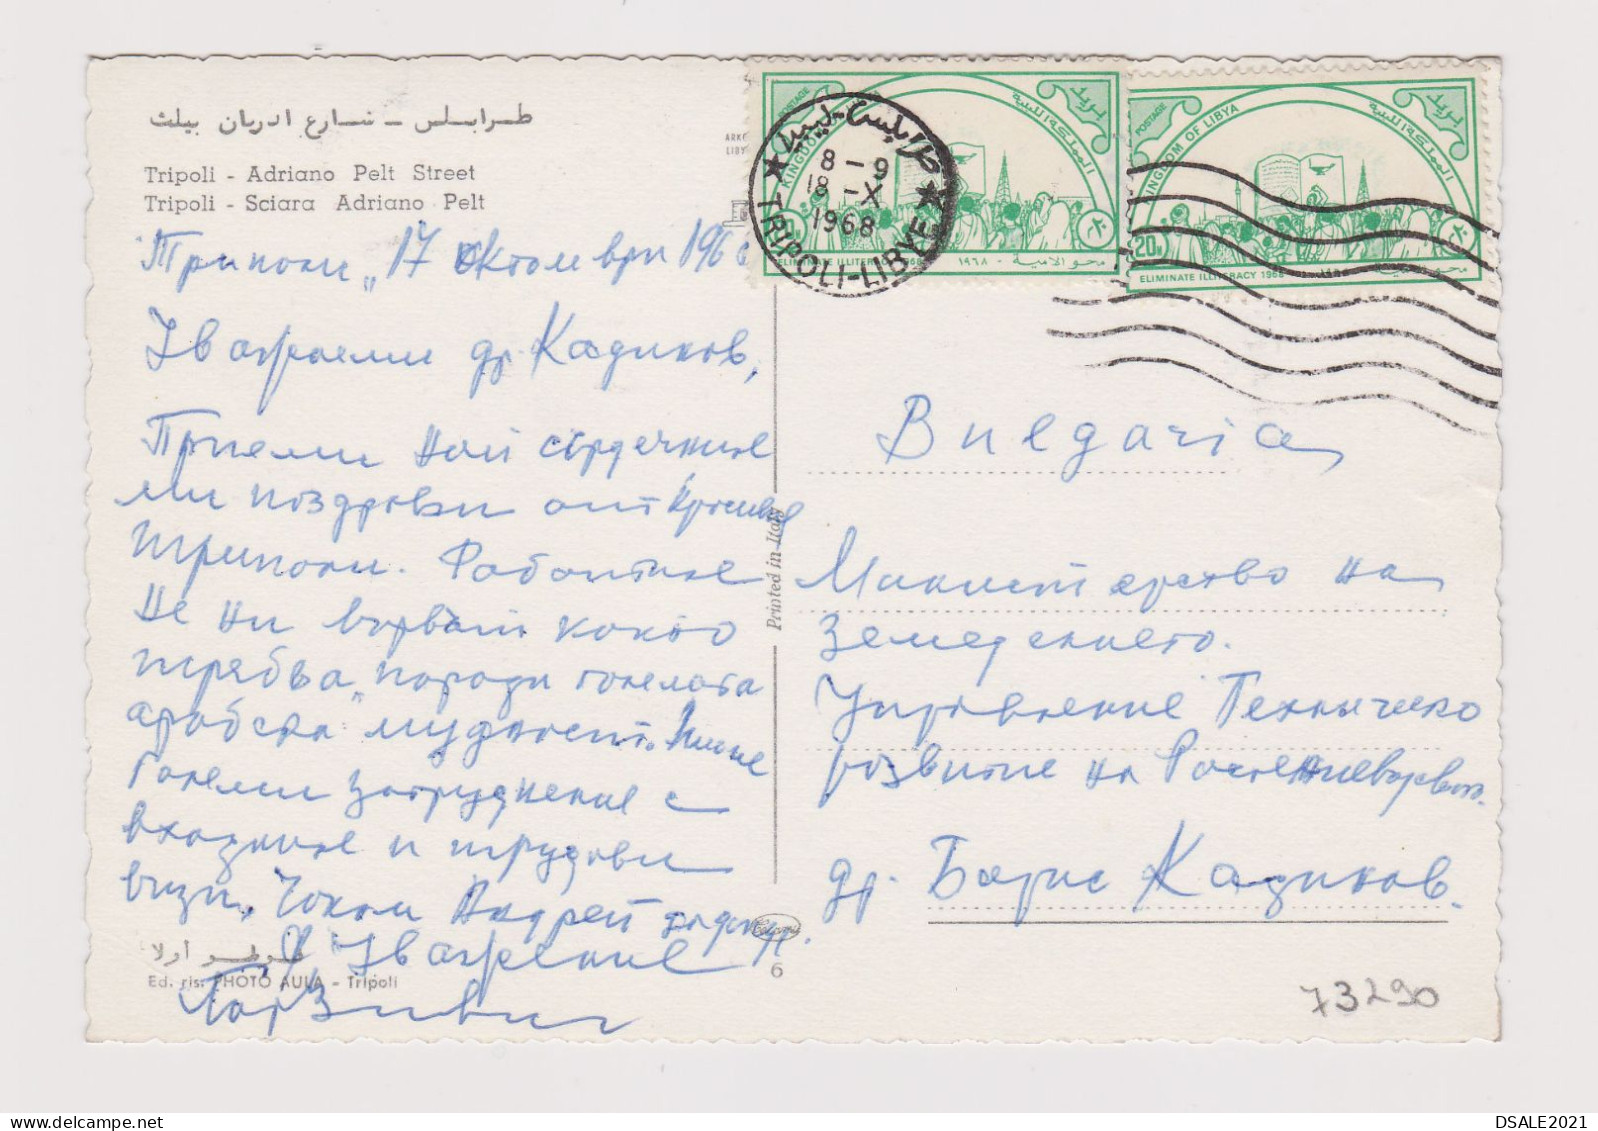 طرابلس - شارع ادريان بيلت
Tripoli - Adriano Pelt Street
Tripoli - Sciara Adriano Pelt
Триполи, 17 Октомври 196
Уважаеми др. Кадинов,
Приеми най сърдечние
ми поздрави от красивия
Триполи. Работите
не ни вървят както
трябва, поради голямата
арабска "мудност". Имаме
големи затруднения с
входните и трудови
визи. Чакам Андрей
Уважение
POSTAGE
بريد
KINGDOM OF LIBYA
المملكة الليبية
ELIMINATE ILLITERACY 1968
محو الامية - ١٩٦٨
POSTAGE
بريد
KINGDOM OF LIBYA
المملكة الليبية
20
ELIMINATE ILLITERACY 1968
محو الامية ١٩٦٨
طرابلس - ليبيا
8 - 9
18 - X
1968
TRIPOLI-LIBYE
Bulgaria
Министерство на
Земеделието.
Управление Техническо
развитие на Растениевъдството.
др. Борис Кадинов.
Printed in Italy
فوتو اولا
Ed. ris. PHOTO AULA - Tripoli
6
73290
DSALE2021